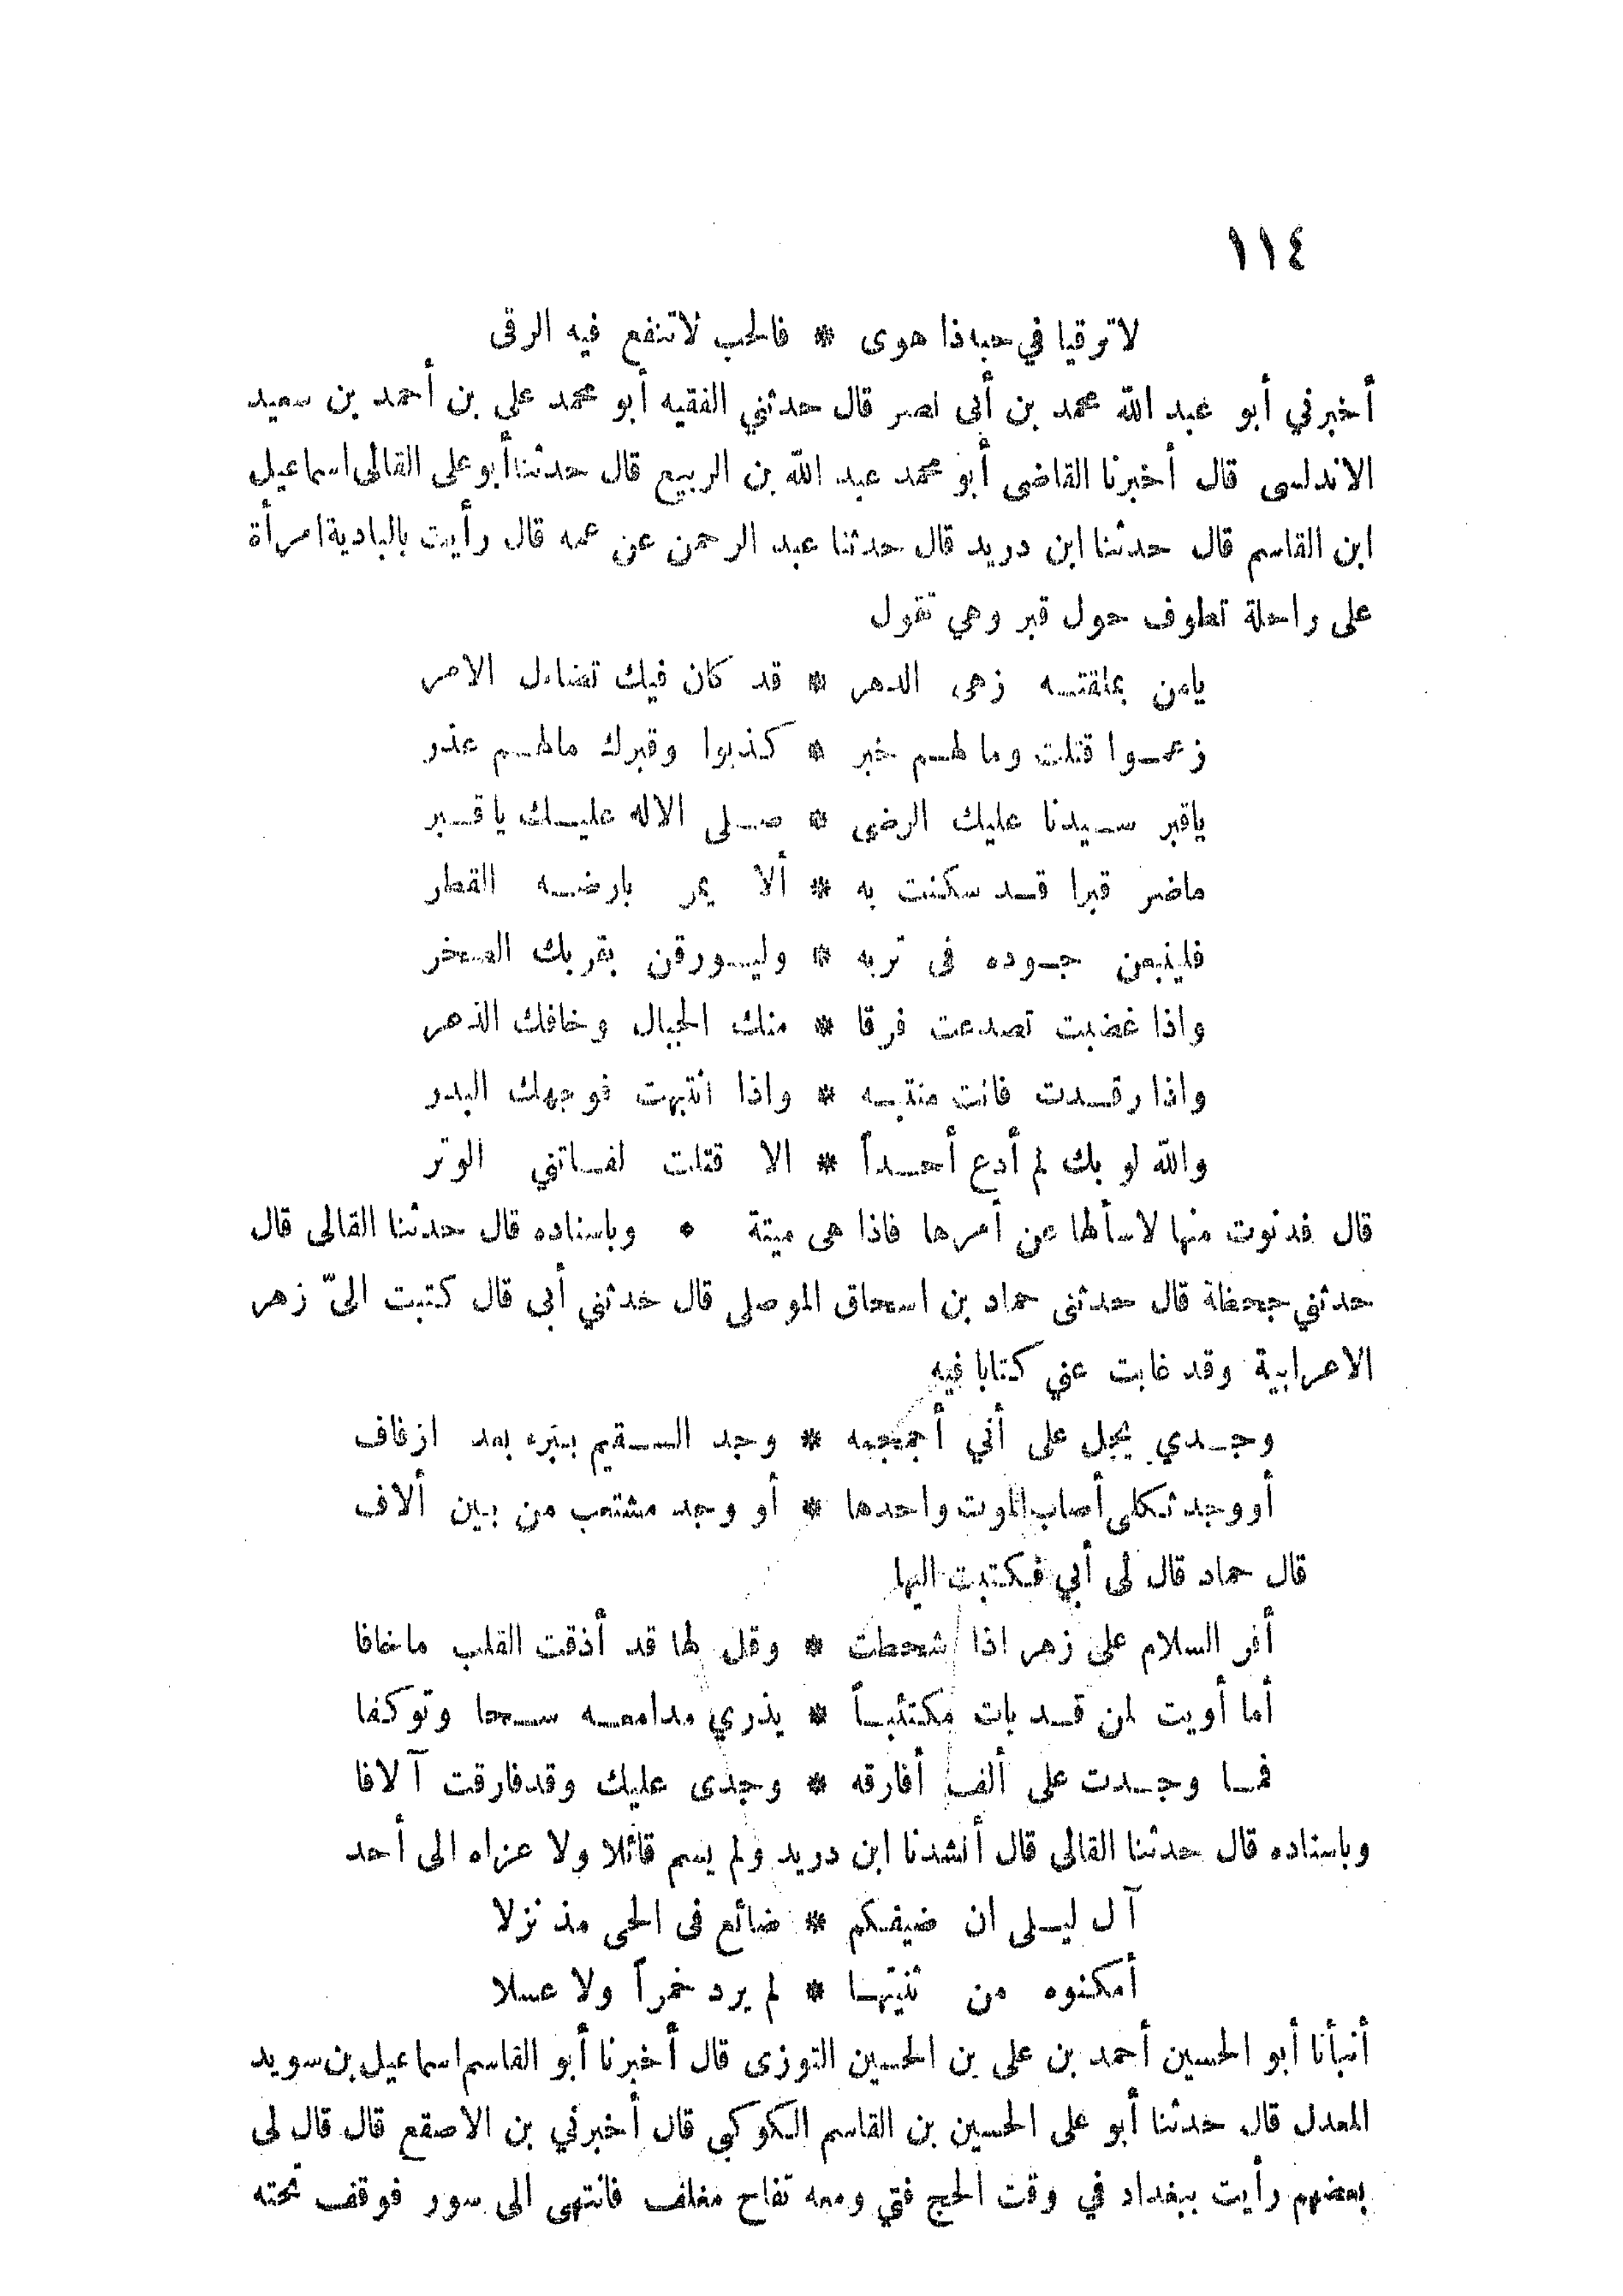 ١١٤
لا ترقيا في حبه ذا هوى * فالحب لا تنفع فيه الرقى
أخبرني أبو عبد الله محمد بن أبى نصر قال حدثني الفقيه أبو محمد علي بن أحمد بن سعيد
الاندلسى قال أخبرنا القاضى أبو محمد عبد الله بن الربيع قال حدثنا أبو على القالى اسماعيل
ابن القاسم قال حدثنا ابن دريد قال حدثنا عبد الرحمن عن عمه قال رأيت بالبادية امرأة
على راحلة تطوف حول قبر وهي تقول
يامن بمقلتـه زهى الدهر * قد كان فيك تضاءل الامر
زعمـوا قتلت وما لهـم خبر * كذبوا وقبرك مالهـم عذر
ياقبر سـيدنا عليك الرضى * صـلى الاله عليـك يا قـبر
ماضر قبرا قـد سكنت به * ألا يمر بارضـه القطر
فلينبعن جـوده فى تربه * وليـورقن بقربك الصخر
واذا غضبت تصدعت فرقا * منك الجبال وخافك الذهر
واذا رقـدت فانت منتبـه * واذا انتبهت فوجهك البدر
والله لو بك لم أدع أحـداً * الا قتلت لفـاتني الوتر
قال فدنوت منها لاسألها عن أمرها فاذا هى ميتة • وباسناده قال حدثنا القالى قال
حدثني جحظة قال حدثنى حماد بن اسحاق الموصلى قال حدثني أبى قال كتبت الىّ زهر
الاعرابية وقد غابت عني كتابا فيه
وجـدي يجل على أني أجمجمه * وجد السـقيم ببره بعد ازفاف
أو وجد ثكلى أصاب الموت واحدها * أو وجد مشتعب من بـين ألاف
قال حماد قال لى أبي فكتبت اليها
أقر السلام على زهر اذا شحطت * وقل لها قد أذقت القلب ماخافا
أما أويت لمن قـد بات مكتئبـاً * يذري مدامعـه سـحا وتوكفا
فمـا وجـدت على ألف أفارقه * وجدى عليك وقد فارقت آلافا
وباسناده قال حدثنا القالى قال أنشدنا ابن دريد ولم يسم قائلا ولا عزاه الى أحد
آل ليـلى ان ضيفكم * ضائع فى الحى مذ نزلا
أمكنوه من ثنيتهـا * لم يرد خمراً ولا عسلا
أنبأنا أبو الحسين أحمد بن على بن الحسين التوزى قال أخبرنا أبو القاسم اسماعيل بن سويد
المعدل قال حدثنا أبو على الحسين بن القاسم الكوكبي قال أخبرني بن الاصقع قال قال لى
بعضهم رأيت ببغداد في وقت الحج فتي ومعه تفاح مغلف فانتهى الى سور فوقف تحته